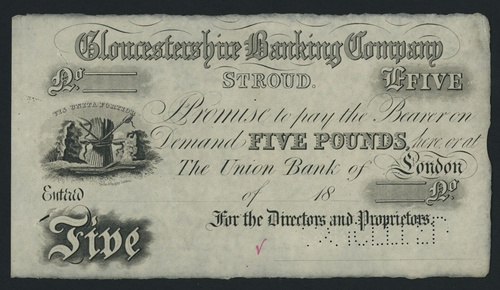 Gloucestershire Banking Company
No STROUD. £FIVE
VIS UNITA FORTIOR
I Promise to pay the Bearer on
Demand FIVE POUNDS, here, or at
The Union Bank of London
Entd of 18 No
For the Directors and Proprietors.
Five